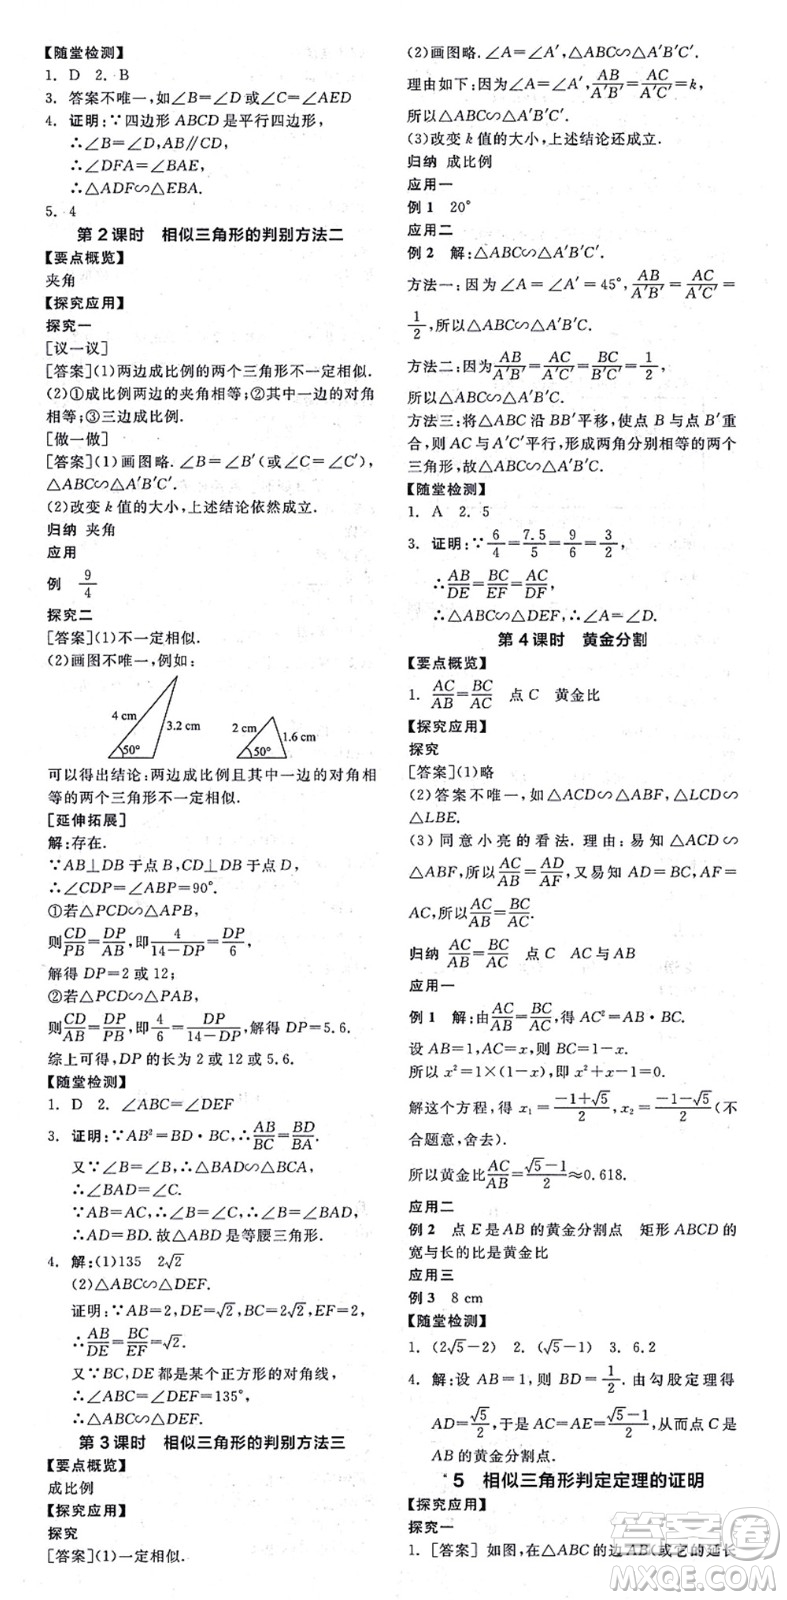 【随堂检测】
1. D 2. B
3. 答案不唯一,如∠B=∠D或∠C=∠AED
4. 证明:∵四边形ABCD是平行四边形,
∴∠B=∠D,AB∥CD,
∴∠DFA=∠BAE,
∴△ADF∽△EBA.
5. 4
第2课时 相似三角形的判别方法二
【要点概览】
夹角
【探究应用】
探究一
[议一议]
[答案](1)两边成比例的两个三角形不一定相似.
(2)①成比例两边的夹角相等;②其中一边的对角
相等;③三边成比例.
[做一做]
[答案](1)画图略.∠B=∠B′(或∠C=∠C′),
△ABC∽△A′B′C′.
(2)改变k值的大小,上述结论依然成立.
归纳 夹角
应用
例 9/4
探究二
[答案](1)不一定相似.
(2)画图不唯一,例如:
4 cm 3.2 cm 50° 2 cm 1.6 cm 50°
可以得出结论:两边成比例且其中一边的对角相
等的两个三角形不一定相似.
[延伸拓展]
解:存在.
∵AB⊥DB于点B,CD⊥DB于点D,
∴∠CDP=∠ABP=90°.
①若△PCD∽△APB,
则CD/PB=DP/AB,即4/(14-DP)=DP/6,
解得DP=2或12;
②若△PCD∽△PAB,
则CD/AB=DP/PB,即4/6=DP/(14-DP),解得DP=5.6.
综上可得,DP的长为2或12或5.6.
【随堂检测】
1. D 2. ∠ABC=∠DEF
3. 证明:∵AB²=BD·BC,∴AB/BC=BD/BA.
又∵∠B=∠B,∴△ABD∽△BCA,
∴∠BAD=∠C.
又∵∠B=∠C,∴∠B=∠BAD,∴
AD=BD.故△ABD是等腰三角形.
4. 解:(1)135 2√2
(2)△ABC∽△DEF.
证明:∵AB=2,DE=√2,BC=2√2,EF=2,
∴AB/DE=BC/EF=√2.
又∵BC,DE都是某个正方形的对角线,
∴∠ABC=∠DEF=135°,
∴△ABC∽△DEF.
第3课时 相似三角形的判别方法三
【要点概览】
成比例
【探究应用】
探究
[答案](1)一定相似.
(2)画图略.∠A=∠A′,△ABC∽△A′B′C′.
理由如下:因为∠A=∠A′,AB/A′B′=AC/A′C′=k,
所以△ABC∽△A′B′C′.
(3)改变k值的大小,上述结论还成立.
归纳 成比例
应用一
例1 20°
应用二
例2 解:△ABC∽△A′B′C′.
方法一:因为∠A=∠A′=45°,AB/A′B′=AC/A′C′=
1/2,所以△ABC∽△A′B′C′.
方法二:因为AB/A′B′=AC/A′C′=BC/B′C′=1/2,
所以△ABC∽△A′B′C′.
方法三:将△ABC沿BB′平移,使点B与点B′重
合,则AC与A′C′平行,形成两角分别相等的两个
三角形,故△ABC∽△A′B′C′.
【随堂检测】
1. A 2. 5
3. 证明:∵6/4=7.5/5=9/6=3/2,
∴AB/DE=BC/EF=AC/DF,
∴△ABC∽△DEF,∴∠A=∠D.
第4课时 黄金分割
【要点概览】
1. AC/AB=BC/AC 点C 黄金比
【探究应用】
探究
[答案](1)略
(2)答案不唯一,如△ACD∽△ABF,△LCD∽
△LBE.
(3)同意小亮的看法.理由:易知△ACD∽
△ABF,所以AC/AB=AD/AF.又易知AD=BC,AF=
AC,所以AC/AB=BC/AC.
归纳 AC/AB=BC/AC 点C AC与AB
应用一
例1 解:由AC/AB=BC/AC,得AC²=AB·BC.
设AB=1,AC=x,则BC=1-x.
所以x²=1×(1-x),即x²+x-1=0.
解这个方程,得x₁=(-1+√5)/2,x₂=(-1-√5)/2(不
合题意,舍去).
所以黄金比AC/AB=(√5-1)/2≈0.618.
应用二
例2 点E是AB的黄金分割点 矩形ABCD的
宽与长的比是黄金比
应用三
例3 8 cm
【随堂检测】
1. (2√5-2) 2. (√5-1) 3. 6.2
4. 解:设AB=1,则BD=1/2.由勾股定理得
AD=√5/2,于是AC=AE=(√5-1)/2,从而点C是
AB的黄金分割点.
5 相似三角形判定定理的证明
【探究应用】
探究一
1. [答案]如图,在△ABC的边AB(或它的延长
答案卷
MXQE.COM